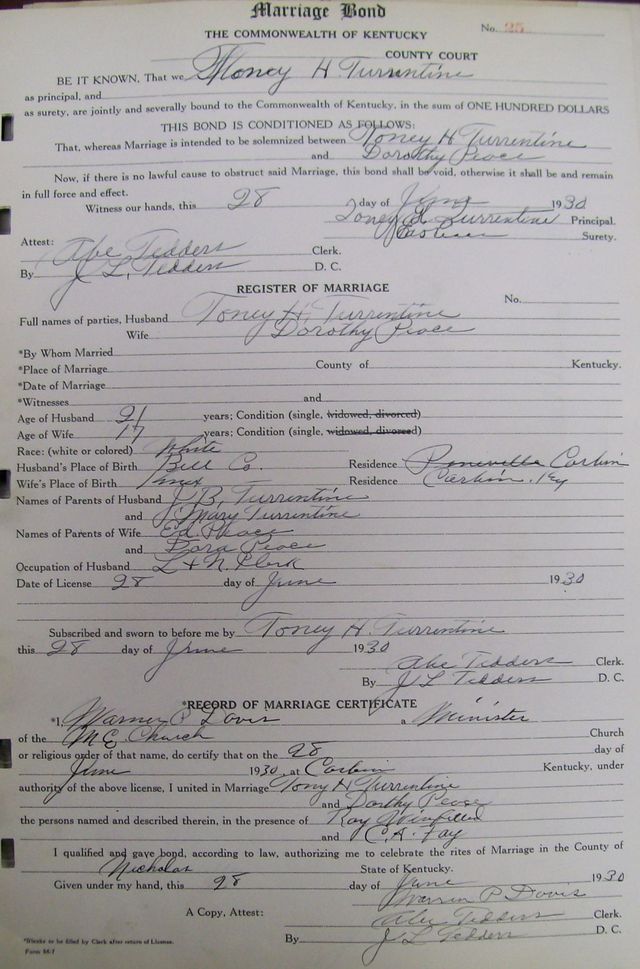 Marriage Bond
No. 25
THE COMMONWEALTH OF KENTUCKY
COUNTY COURT
BE IT KNOWN, That we Toney H Turrentine
as principal, and
as surety, are jointly and severally bound to the Commonwealth of Kentucky, in the sum of ONE HUNDRED DOLLARS
THIS BOND IS CONDITIONED AS FOLLOWS:
That, whereas Marriage is intended to be solemnized between Toney H Turrentine
and Dorothy Peace
Now, if there is no lawful cause to obstruct said Marriage, this bond shall be void, otherwise it shall be and remain
in full force and effect.
Witness our hands, this 28 day of June 1930
Toney H. Turrentine Principal.
Surety.
Attest: Abe Tedders Clerk.
By J L, Tedders D. C.
REGISTER OF MARRIAGE
No.
Full names of parties, Husband Toney H. Turrentine
Wife Dorothy Peace
*By Whom Married
*Place of Marriage County of Kentucky.
*Date of Marriage
*Witnesses and
Age of Husband 21 years; Condition (single, widowed, divorced)
Age of Wife 17 years; Condition (single, widowed, divorced)
Race: (white or colored) White
Husband's Place of Birth Bell Co. Residence Pineville Corbin
Wife's Place of Birth Residence Corbin, Ky
Names of Parents of Husband J. B, Turrentine
and Mary Turrentine
Names of Parents of Wife Ed. Peace
and Dora Peace
Occupation of Husband L & N. Clerk
Date of License 28 day of June 1930
Subscribed and sworn to before me by Toney H. Turrentine
this 28 day of June 1930
Abe Tedders Clerk.
By J L Tedders D. C.
*RECORD OF MARRIAGE CERTIFICATE
*I, Warren P Davis a Minister
of the M.E. Church Church
or religious order of that name, do certify that on the 28 day of
June 1930, at Corbin Kentucky, under
authority of the above license, I united in Marriage Tony H Turrentine
and Dorthy Pease
the persons named and described therein, in the presence of Roy Winfilled
and C. A. Fay
I qualified and gave bond, according to law, authorizing me to celebrate the rites of Marriage in the County of
Nicholas State of Kentucky.
Given under my hand, this 28 day of June 1930
Warren P Davis
A Copy, Attest: Abe Tedders Clerk.
By J L Tedders D. C.
*Blanks to be filled by Clerk after return of License.
Form 84-7